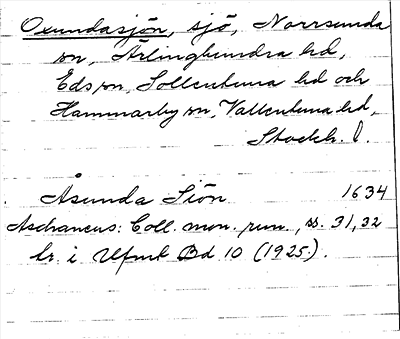 Oxundasjön, sjö, Norrsunda
sn, Ärlinghundra hd,
Eds sn, Sollentuna hd och
Hammarby sn, Vallentuna hd,
Stockh. l.
Åsunda Siön 1634
Aschaneus: Coll. mon. run., ss. 31, 32
tr. i Ufmt Bd 10 (1925).